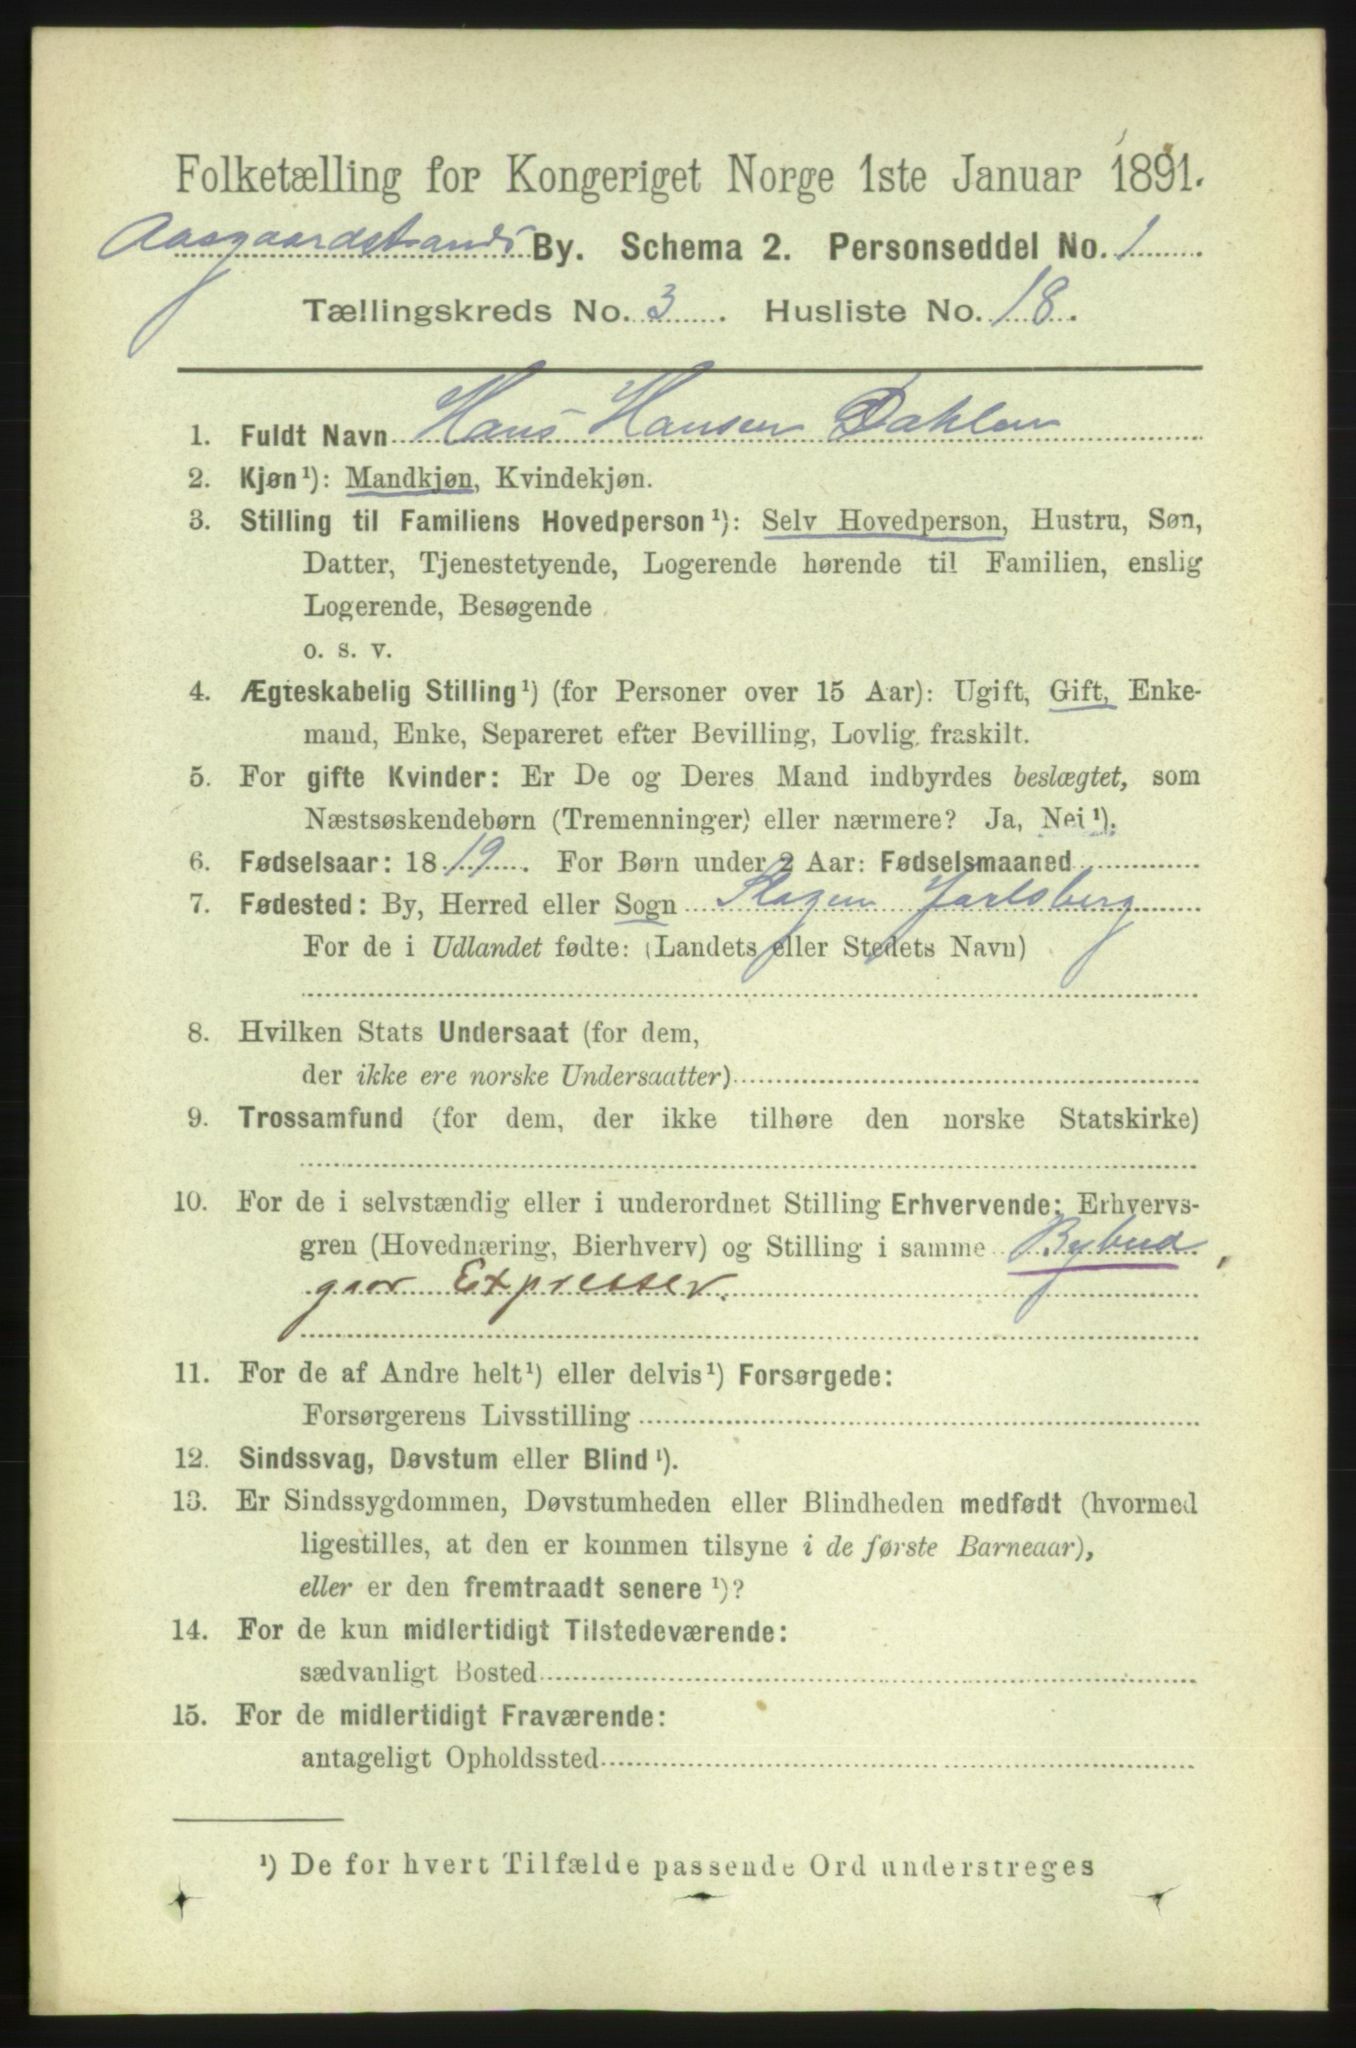 Folketælling for Kongeriget Norge 1ste Januar 1891.
Aasgaardstrands By. Schema 2. Personseddel No. 1
Tællingskreds No. 3. Husliste No. 18.
1. Fuldt Navn Hans Hansen Dahlen
2. Kjøn¹): Mandkjøn, Kvindekjøn.
3. Stilling til Familiens Hovedperson¹): Selv Hovedperson, Hustru, Søn,
Datter, Tjenestetyende, Logerende hørende til Familien, enslig
Logerende, Besøgende
o. s. v.
4. Ægteskabelig Stilling¹) (for Personer over 15 Aar): Ugift, Gift, Enke-
mand, Enke, Separeret efter Bevilling, Lovlig fraskilt.
5. For gifte Kvinder: Er De og Deres Mand indbyrdes beslægtet, som
Næstsøskendebørn (Tremenninger) eller nærmere? Ja, Nei¹).
6. Fødselsaar: 1819. For Børn under 2 Aar: Fødselsmaaned
7. Fødested: By, Herred eller Sogn Slagen Jarlsberg
For de i Udlandet fødte: (Landets eller Stedets Navn)
8. Hvilken Stats Undersaat (for dem,
der ikke ere norske Undersaatter)
9. Trossamfund (for dem, der ikke tilhøre den norske Statskirke)
10. For de i selvstændig eller i underordnet Stilling Erhvervende: Erhvervs-
gren (Hovednæring, Bierhverv) og Stilling i samme Bybud,
gaar Expresser.
11. For de af Andre helt¹) eller delvis¹) Forsørgede:
Forsørgerens Livsstilling
12. Sindssvag, Døvstum eller Blind¹).
13. Er Sindssygdommen, Døvstumheden eller Blindheden medfødt (hvormed
ligestilles, at den er kommen tilsyne i de første Barneaar),
eller er den fremtraadt senere¹)?
14. For de kun midlertidigt Tilstedeværende:
sædvanligt Bosted
15. For de midlertidigt Fraværende:
antageligt Opholdssted
¹) De for hvert Tilfælde passende Ord understreges